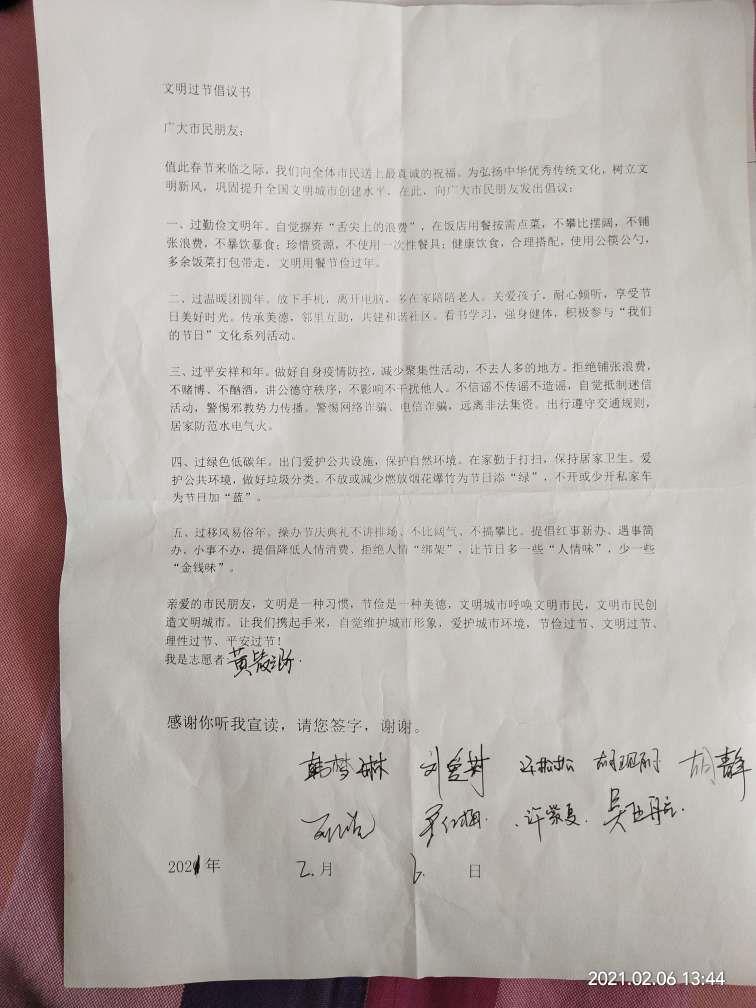 文明过节倡议书
广大市民朋友：
值此春节来临之际，我们向全体市民送上最真诚的祝福。为弘扬中华优秀传统文化，树立文
明新风，巩固提升全国文明城市创建水平，在此，向广大市民朋友发出倡议：
一、过勤俭文明年。自觉摒弃“舌尖上的浪费”，在饭店用餐按需点菜，不攀比摆阔，不铺
张浪费，不暴饮暴食；珍惜资源，不使用一次性餐具；健康饮食，合理搭配，使用公筷公勺，
多余饭菜打包带走，文明用餐节俭过年。
二、过温暖团圆年。放下手机，离开电脑，多在家陪陪老人。关爱孩子，耐心倾听，享受节
日美好时光。传承美德，邻里互助，共建和谐社区。看书学习，强身健体，积极参与“我们
的节日”文化系列活动。
三、过平安祥和年。做好自身疫情防控，减少聚集性活动，不去人多的地方。拒绝铺张浪费，
不赌博、不酗酒，讲公德守秩序，不影响不干扰他人。不信谣不传谣不造谣，自觉抵制迷信
活动，警惕邪教势力传播。警惕网络诈骗、电信诈骗，远离非法集资。出行遵守交通规则，
居家防范水电气火。
四、过绿色低碳年。出门爱护公共设施，保护自然环境。在家勤于打扫，保持居家卫生。爱
护公共环境，做好垃圾分类。不放或减少燃放烟花爆竹为节日添“绿”，不开或少开私家车
为节日加“蓝”。
五、过移风易俗年。操办节庆典礼不讲排场、不比阔气、不搞攀比。提倡红事新办、遇事简
办、小事不办，提倡降低人情消费，拒绝人情“绑架”，让节日多一些“人情味”，少一些
“金钱味”。
亲爱的市民朋友，文明是一种习惯，节俭是一种美德，文明城市呼唤文明市民，文明市民创
造文明城市。让我们携起手来，自觉维护城市形象，爱护城市环境，节俭过节、文明过节、
理性过节、平安过节！
我是志愿者：黄
感谢你听我宣读，请您签字，谢谢。
韩梦琳 胡静
许紫夏
2021年 2.月 6.日
2021.02.06 13:44